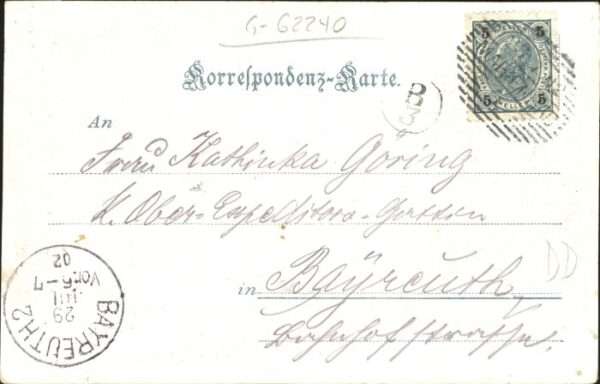 G-62240
5 5
5 5
Korrespondenz-Karte.
B
3
An
Frau Kathinka Göring
K. Ober-Expeditors-Gattin
in Bayreuth,
Bahnhofstrasse.
DD
BAYREUTH 2
29
JUL
Vor. 6-7
02